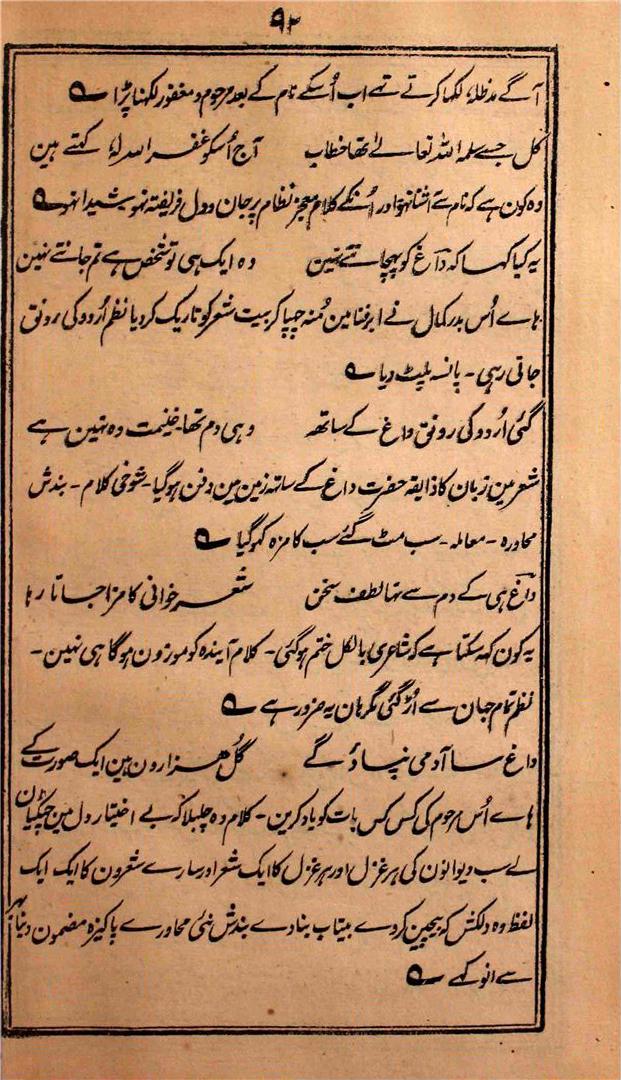 ۹۲
آگے مدظلہ لکھا کرتے تھے اب اُسکے نام کے بعد مرحوم و مغفور لکھنا پڑا ؎
کل جسے سلمہ اللہ تعالےٰ تھا خطاب آج اُسکو غفر اللہ لہٗ کہتے ہین
وہ کون ہے کہ نام سے آشنا نہو اور اُنکے کلام معجز نظام پر جان و دل فریفتہ نہو شیدا نہو ؎
یہ کیا کہا کہ داغ کو پہچانتے نہین وہ ایک ہی تو شخص ہے تم جانتے نہین
ہاے اُس بدر کمال نے ابر فنا مین مُنہ چھپا کر بیت شعر کو تاریک کر دیا نظم اُردو کی رونق
جاتی رہی۔ پانسہ پلٹ دیا ؎
گئی اُردو کی رونق داغ کے ساتھ وہی دم تھا غنیمت وہ نہین ہے
شعر مین زبان کا ذایقہ حضرت داغ کے ساتھ زمین مین دفن ہو گیا۔ شوخی کلام۔ بندش
محاورہ۔ معاملہ۔ سب مٹ گئے سب کا مزہ کہو گیا ؎
داغ ہی کے دم سے تہا لطف سخن شعر خوانی کا مزا جاتا رہا
یہ کون کہہ سکتا ہے کہ شاعری بالکل ختم ہو گئی۔ کلام آیندہ کو موزون ہو گا ہی نہین۔
نظم تمام جہان سے اُڑ گئی مگر ہان یہ ضرور ہے ؎
داغ سا آدمی نپاؤ گے گُل ہزارون ہین ایک صورت کے
ہاے اُس مرحوم کی کس کس بات کو یاد کرین۔ کلام وہ چلبلا کہ بے اختیار دل مین چٹکیان
لے سب دیوانون کی ہر غزل اور ہر غزل کا ایک شعر اور سارے شعرون کا ایک ایک
لفظ وہ دلکش کہ بیچین کر دے بیتاب بنا دے بندش نئی محاورے پاکیزہ مضمون دنیا بہر
سے انوکھے ؎